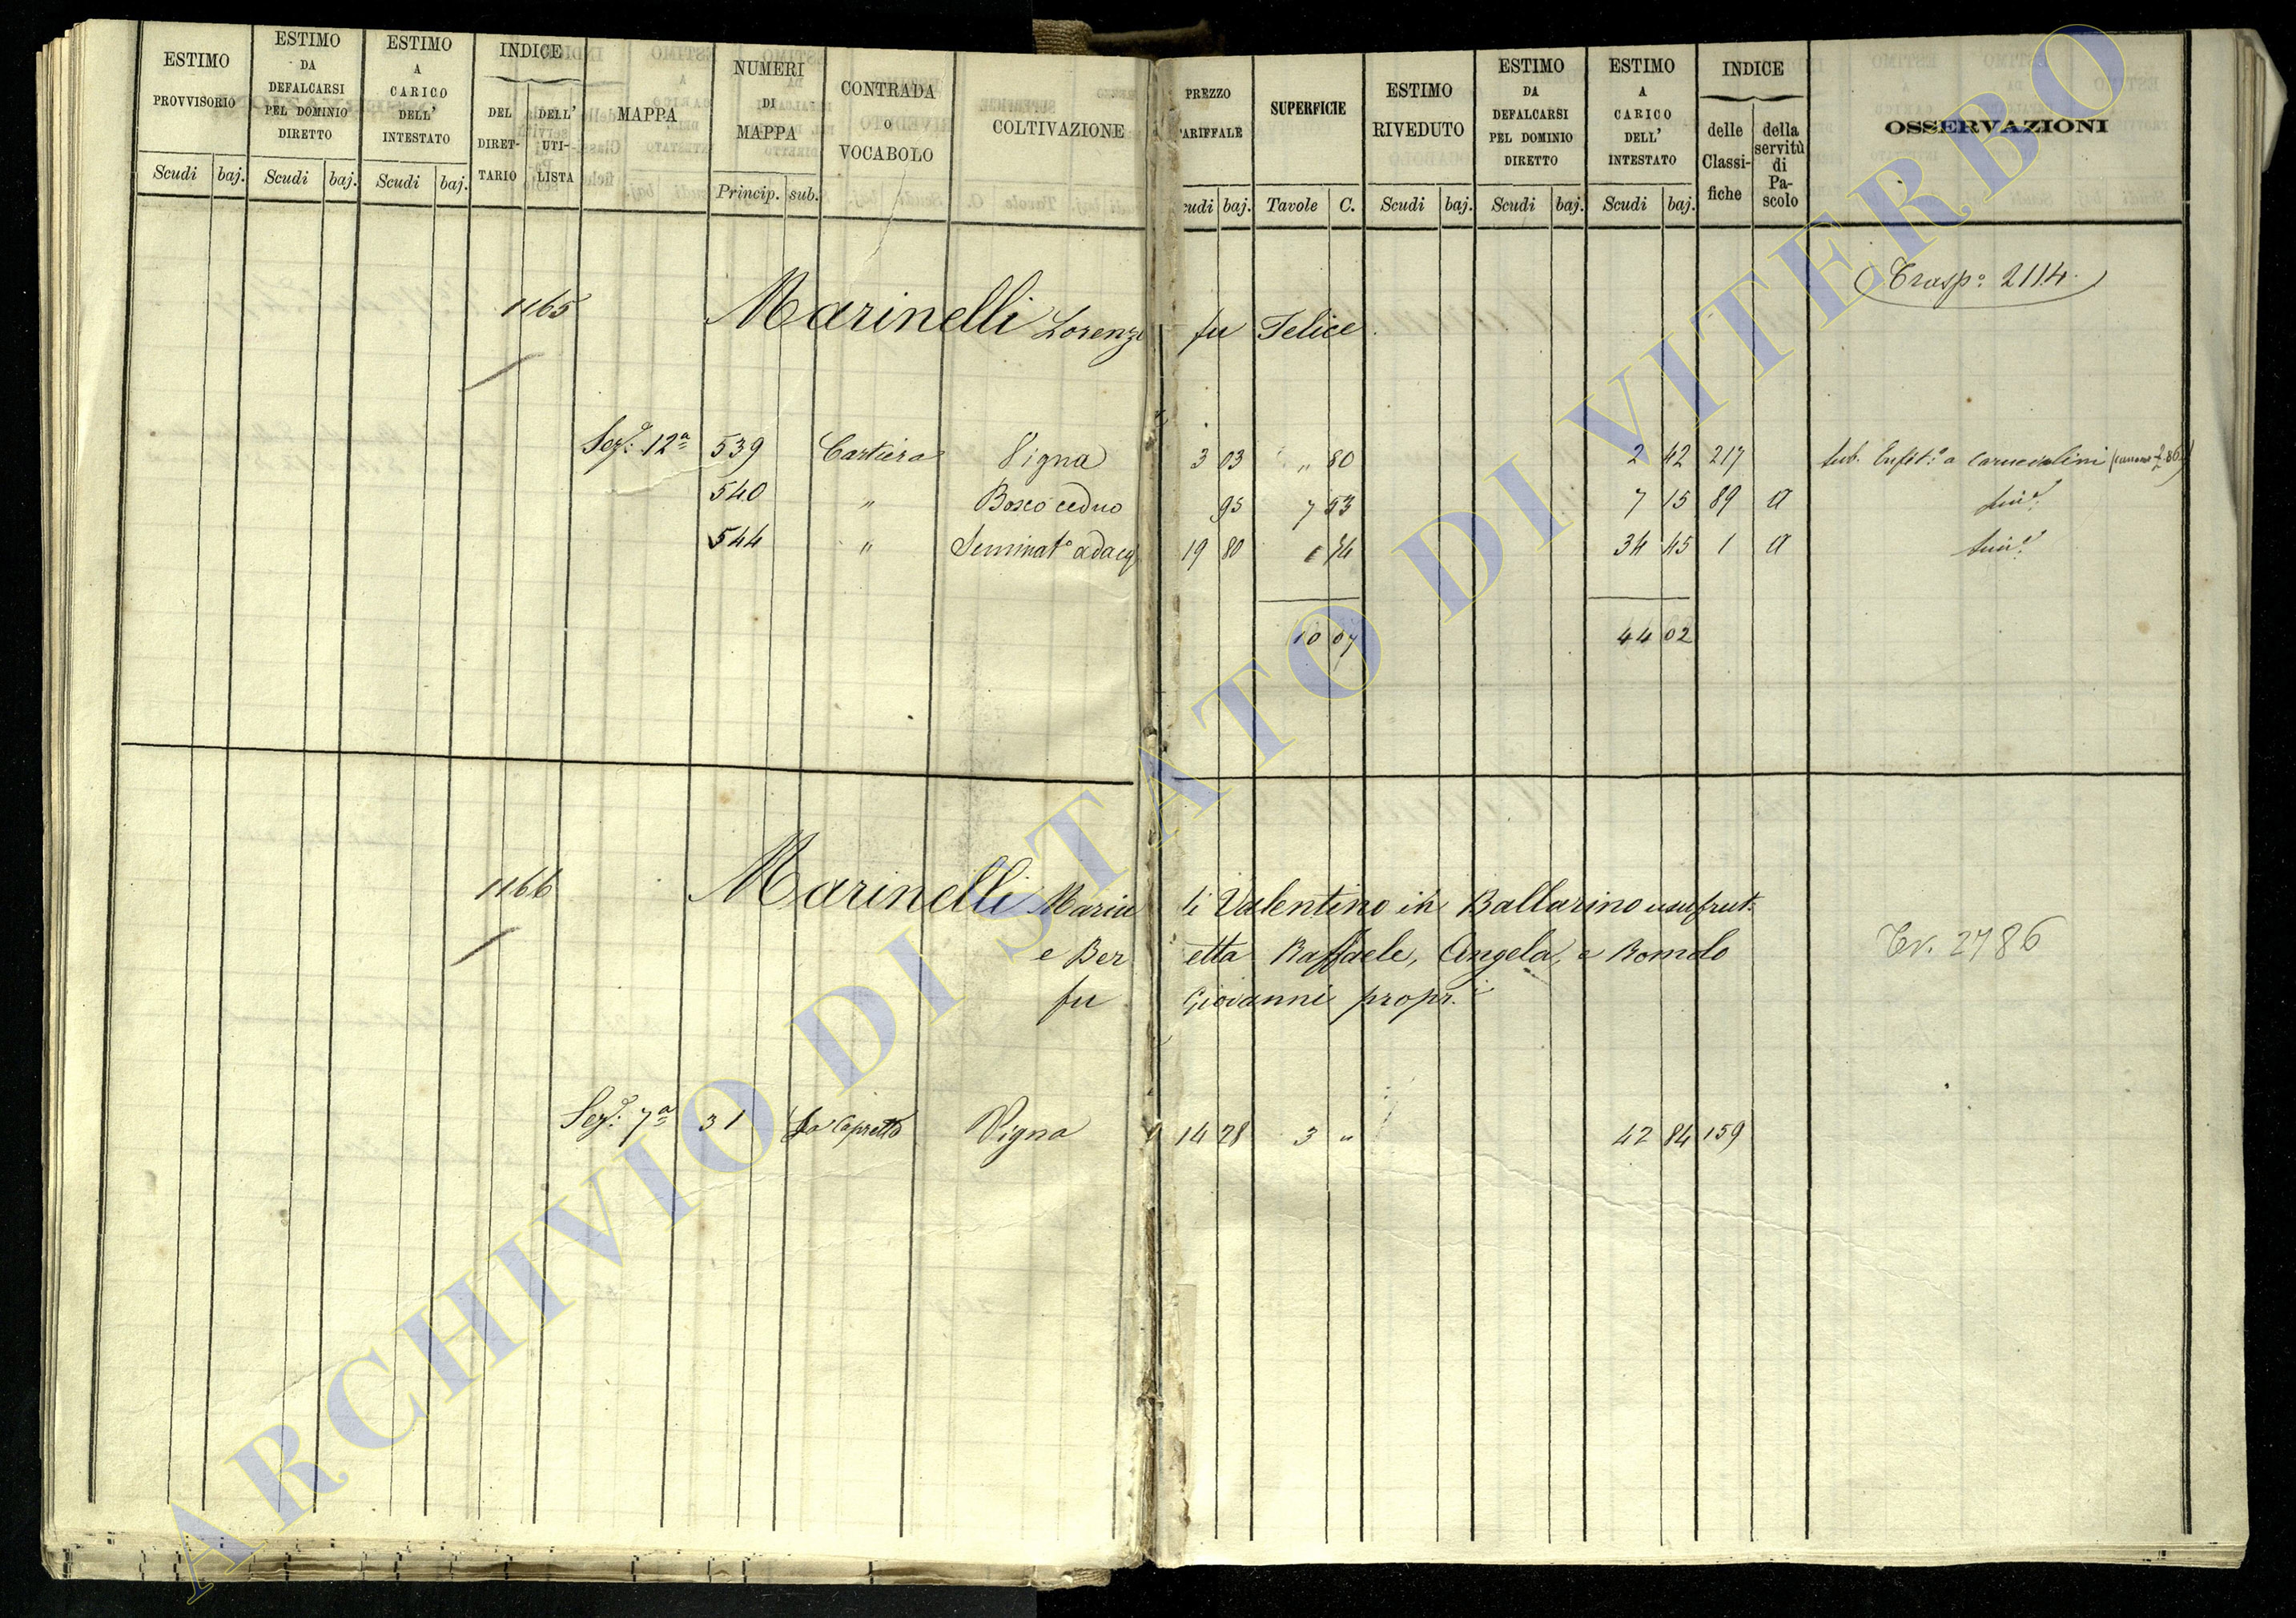 ESTIMO PROVVISORIO
ESTIMO DA DEFALCARSI PEL DOMINIO DIRETTO
ESTIMO A CARICO DELL' INTESTATO
INDICE
DEL DIRET-TARIO
DELL' UTI-LISTA
MAPPA
NUMERI DI MAPPA
CONTRADA O VOCABOLO
COLTIVAZIONE
PREZZO TARIFFALE
SUPERFICIE
ESTIMO RIVEDUTO
ESTIMO DA DEFALCARSI PEL DOMINIO DIRETTO
ESTIMO A CARICO DELL' INTESTATO
INDICE
delle Classi-fiche
della servitù di Pa-scolo
OSSERVAZIONI
Scudi baj. Scudi baj. Scudi baj. Princip. sub. cudi baj. Tavole C. Scudi baj. Scudi baj. Scudi baj.
(Trasp: 2114.)
1165 Marinelli Lorenzo fu Felice
Seze: 12a 539 Cartiera Vigna 3 03 " 80 2 42 217 sub. Enfit: a
540 " Bosco ceduo 95 7 53 7 15 89 a
544 " Seminato adacq 19 80 1 74 34 45 1 a
10 07 44 02
1166 Marinelli Maria di Valentino in Ballarino usufrut:
e Beretta Raffaele, Angela, e Romolo Tr. 2786
fu Giovanni propr.i
Sez: 7a 31 La Capretta Vigna 14 28 3 " 42 84 159
ARCHIVIO DI STATO DI VITERBO